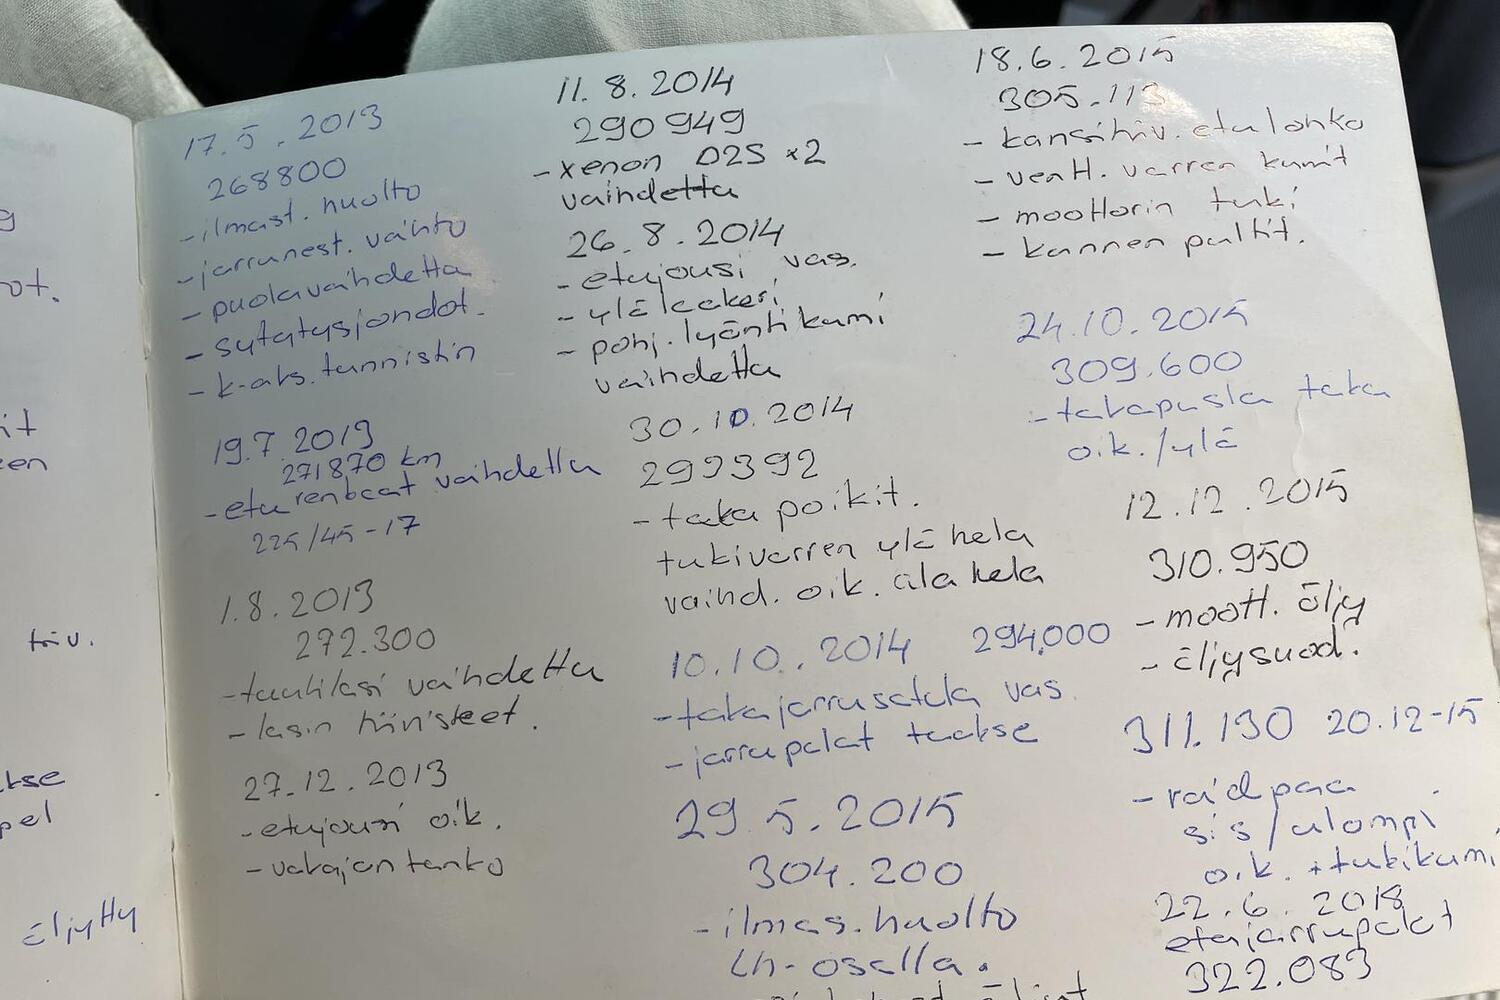 g
ot.
it
en
tiv.
kse
pel
öljytty
17.5.2013
268800
- ilmast. huolto
- jarrunest. vaihto
- puola vaihdettu
- sytytysjohdot.
- k-aks. tunnistin
19.7.2013
271870 km
- etu renkaat vaihdettu
225/45-17
1.8.2013
272.300
- tuulilasi vaihdettu
- lasin tiivisteet.
27.12.2013
- etujousi oik.
- vakajan tanko
11.8.2014
290949
- xenon D2S x2
vaihdettu
26.8.2014
- etujousi vas.
- ylälaakeri
- pohj. lyöntikumi
vaihdettu
30.10.2014
299392
- taka poikit.
tukivarren ylä hela
vaihd. oik. ala hela
10.10.2014 294,000
- takajarrusatula vas.
- jarrupalat taakse
29.5.2015
304.200
- ilmas. huolto
LH-osalla.
18.6.2015
305.113
- kansitiiv. etulohko
- ventt. varren kumit
- moottorin tuki
- kannen pultit.
24.10.2015
309.600
- takapusla taka
oik./ylä
12.12.2015
310.950
- moott. öljy
- öljysuod.
311.130 20.12-15
- raidpää
sis/ulompi
oik. + tukikumi
22.6.2018
etujarrupalat
322.083